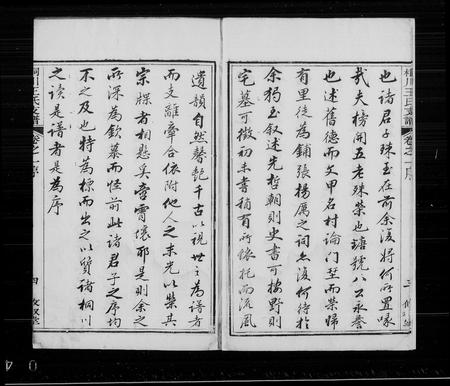 桐川王氏宗譜 卷之一 序 三
也諸君子珠玉在前余復將何所置喙
哉夫榜開五老殊榮也璿號八公永譽
也述舊德而文甲名村論門望而榮歸
有里徒為鋪張揚厲之詞亦復何待於
余獨至叙述先哲朝則史書可按野則
宅墓可徵初未嘗稍有所依托而流風
遺韻自然馨馤千古以視世之為譜者
而支離牽合依附他人之末光以榮其
宗牒者相懸奚啻霄壤耶是則余之
所深為欽慕而怪前此諸君子之序均
不之及也特為標而出之以質諸桐川
之讀是譜者是為序
桐川王氏宗譜 卷之一 序 四